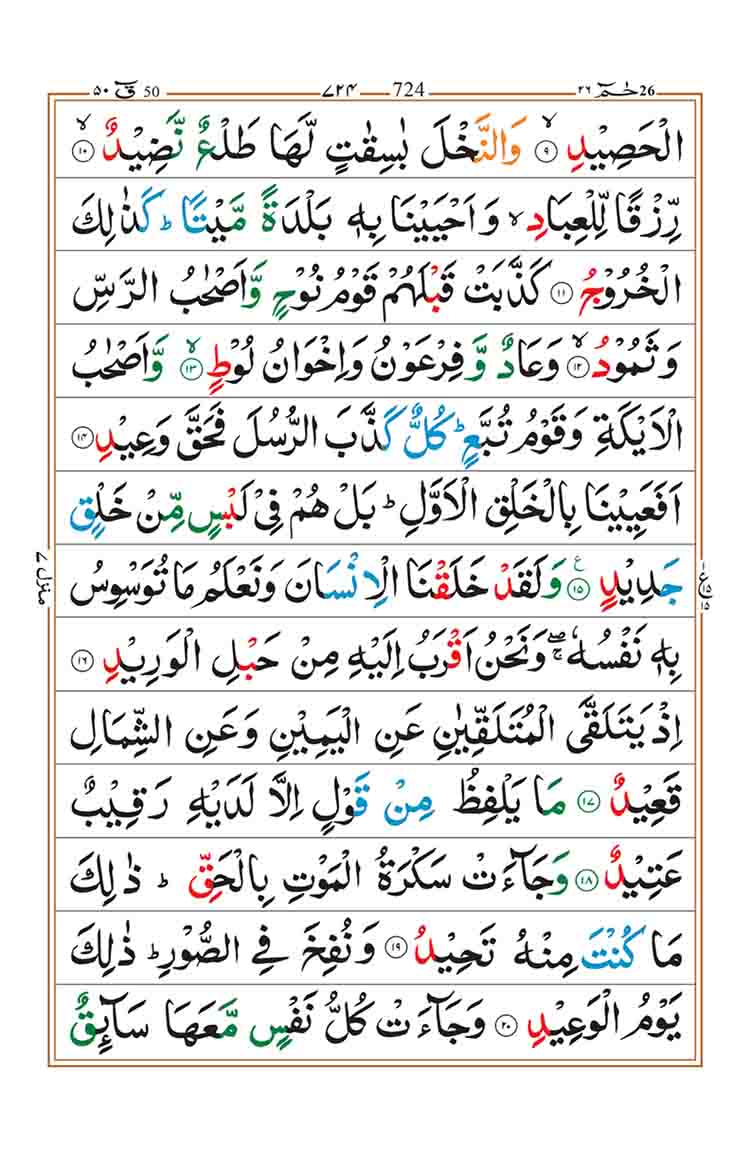 حٰمٓ 26 ٢٦ 724 ۷۲۴ 50 قٓ ۵۰
الْحَصِيْدِ ۙ﴿٩﴾ وَالنَّخْلَ بٰسِقٰتٍ لَّهَا طَلْعٌ نَّضِيْدٌ ۙ﴿١٠﴾
رِّزْقًا لِّلْعِبَادِ ۙ وَاَحْيَيْنَا بِهٖ بَلْدَةً مَّيْتًا ؕ كَذٰلِكَ
الْخُرُوْجُ ﴿١١﴾ كَذَّبَتْ قَبْلَهُمْ قَوْمُ نُوْحٍ وَّاَصْحٰبُ الرَّسِّ
وَثَمُوْدُ ۙ﴿١٢﴾ وَعَادٌ وَّفِرْعَوْنُ وَاِخْوَانُ لُوْطٍ ۙ﴿١٣﴾ وَّاَصْحٰبُ
الْاَيْكَةِ وَقَوْمُ تُبَّعٍ ؕ كُلٌّ كَذَّبَ الرُّسُلَ فَحَقَّ وَعِيْدِ ﴿١٤﴾
اَفَعَيِيْنَا بِالْخَلْقِ الْاَوَّلِ ؕ بَلْ هُمْ فِيْ لَبْسٍ مِّنْ خَلْقٍ
جَدِيْدٍ ﴿١٥﴾ ع وَلَقَدْ خَلَقْنَا الْاِنْسَانَ وَنَعْلَمُ مَا تُوَسْوِسُ
بِهٖ نَفْسُهٗ ۖۚ وَنَحْنُ اَقْرَبُ اِلَيْهِ مِنْ حَبْلِ الْوَرِيْدِ ﴿١٦﴾
اِذْ يَتَلَقَّى الْمُتَلَقِّيٰنِ عَنِ الْيَمِيْنِ وَعَنِ الشِّمَالِ
قَعِيْدٌ ﴿١٧﴾ مَا يَلْفِظُ مِنْ قَوْلٍ اِلَّا لَدَيْهِ رَقِيْبٌ
عَتِيْدٌ ﴿١٨﴾ وَجَآءَتْ سَكْرَةُ الْمَوْتِ بِالْحَقِّ ؕ ذٰلِكَ
مَا كُنْتَ مِنْهُ تَحِيْدُ ﴿١٩﴾ وَنُفِخَ فِي الصُّوْرِ ؕ ذٰلِكَ
يَوْمُ الْوَعِيْدِ ﴿٢٠﴾ وَجَآءَتْ كُلُّ نَفْسٍ مَّعَهَا سَآئِقٌ
منزل ۷